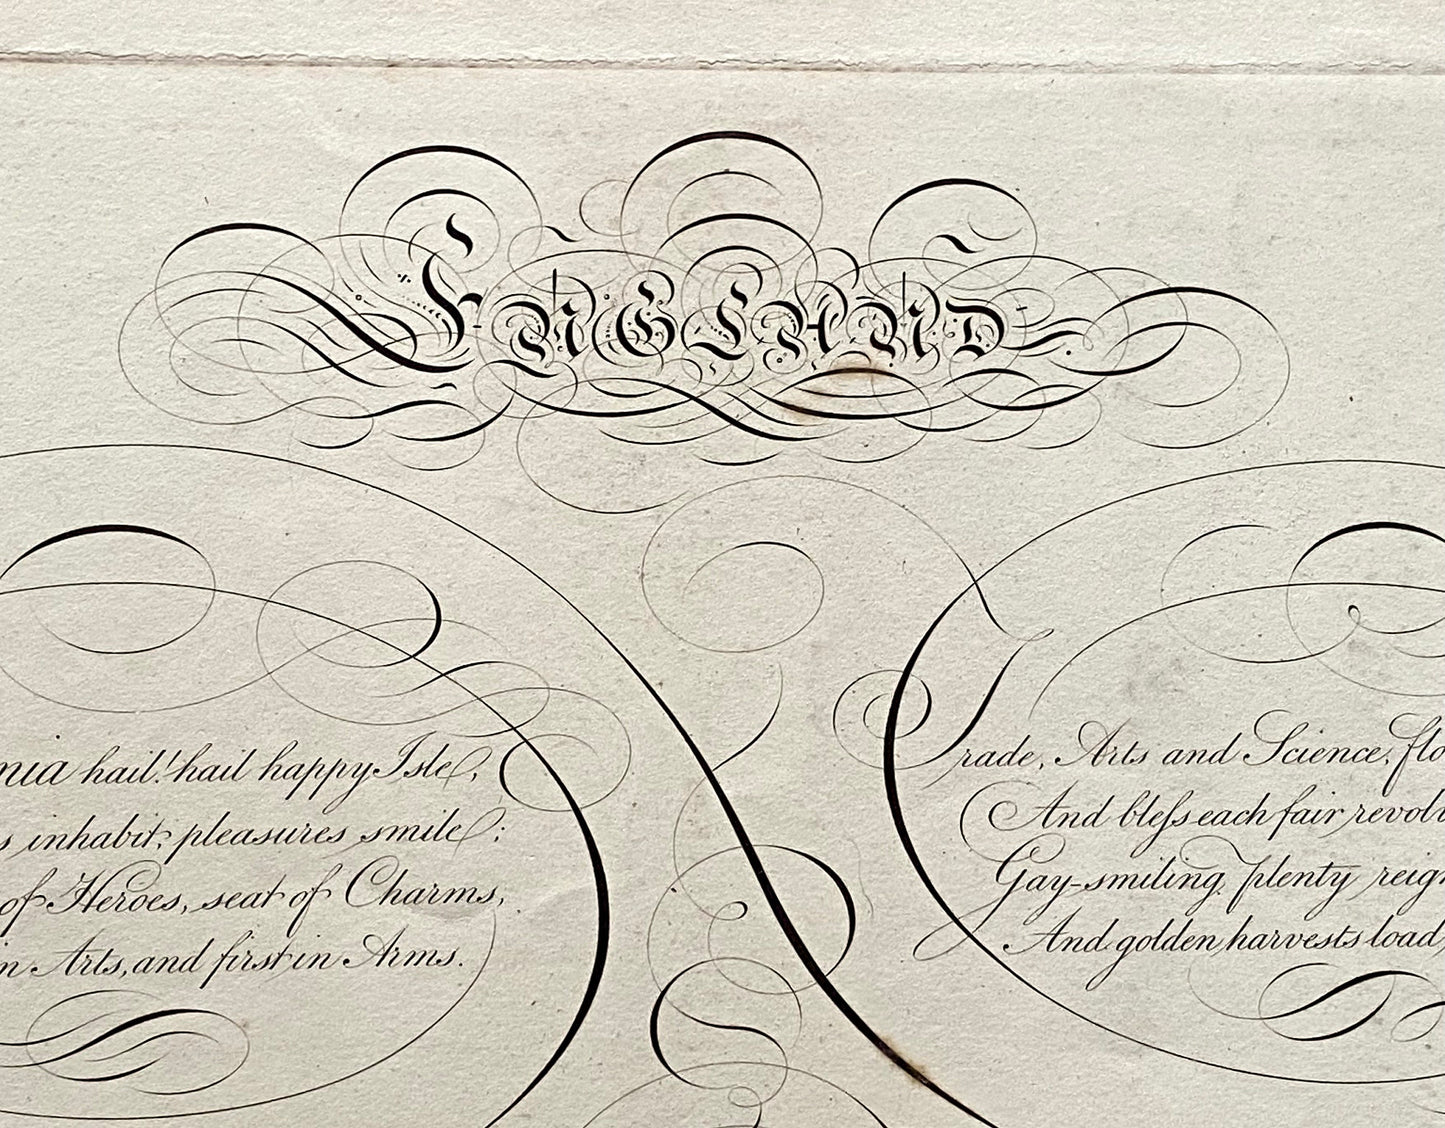 ENGLAND
nia hail! hail happy Isle,
s inhabit; pleasures smile;
of Heroes, seat of Charms,
n Arts, and first in Arms.
Trade, Arts and Science, flo
And bleſs each fair revolv
Gay-smiling plenty reig
And golden harvests load